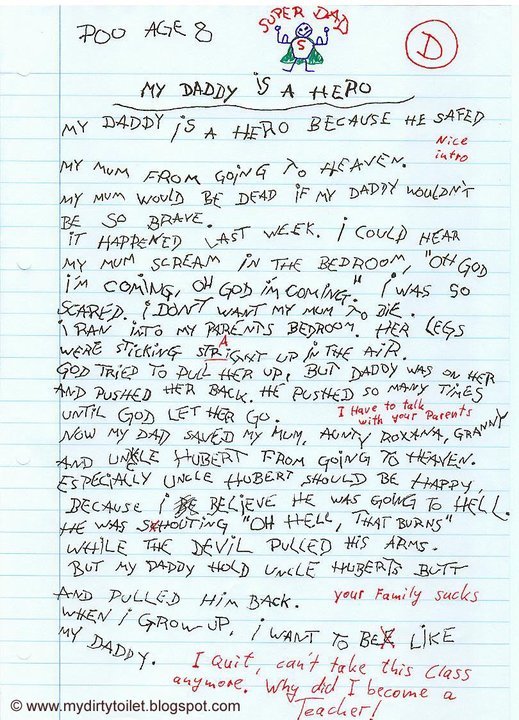 POO AGE 8
SUPER DAD
S
D
MY DADDY iS A HERO
MY DADDY iS A HERO BECAUSE HE SAFED
Nice
intro
MY MUM FROM GOiNG TO HEAVEN.
MY MUM WOULD BE DEAD iF MY DADDY WOULDN'T
BE SO BRAVE.
iT HAPPENED LAST WEEK. i COULD HEAR
MY MUM SCREAM iN THE BEDROOM, "OH GOD
i'M COMiNG, OH GOD iM COMiNG." i WAS SO
SCARED. i DON'T WANT MY MUM TO DiE.
i RAN iNTO MY PARENTS BEDROOM. HER LEGS
A
WERE STiCKiNG STRiGHT UP iN THE AiR.
GOD TRiED TO PULL HER UP, BUT DADDY WAS ON HER
AND PUSHED HER BACK. HE PUSHED SO MANY TiMES
UNTiL GOD LET HER GO.
I Have to talk
with your Parents
NOW MY DAD SAVED MY MUM, AUNTY ROXANA, GRANNY
AND UNCLE HUBERT FROM GOiNG TO HEAVEN.
ESPECiALLY UNCLE HUBERT SHOULD BE HAPPY,
BECAUSE i BELiEVE HE WAS GOiNG TO HELL.
HE WAS SHOUTiNG "OH HELL, THAT BURNS"
WHiLE THE DEViL PULLED HiS ARMS.
BUT MY DADDY HOLD UNCLE HUBERTS BUTT
AND PULLED HiM BACK.
your Family sucks
WHEN i GROW UP, i WANT TO BE LiKE
MY DADDY.
I Quit, can't take this Class
anymore. Why did I become a
Teacher!
© www.mydirtytoilet.blogspot.com